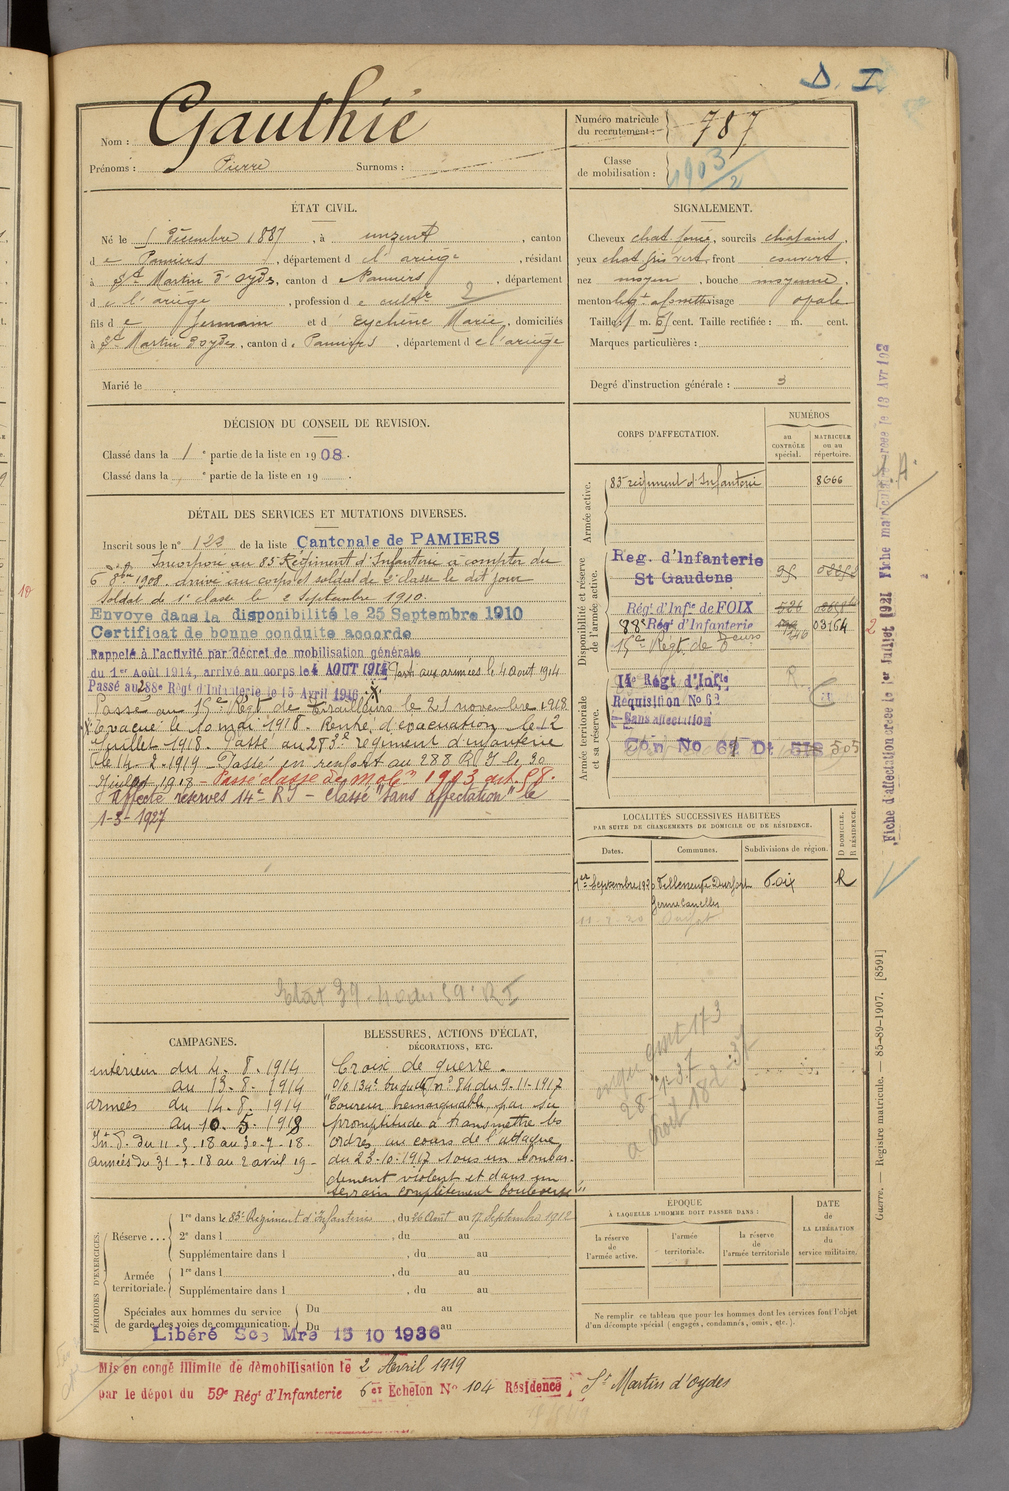 D. I.
Nom : Gauthié
Prénoms : Pierre Surnoms :
Numéro matricule du recrutement : 787
Classe de mobilisation : 1903/2
ÉTAT CIVIL.
Né le 1 Décembre 1887, à Unzent, canton
de Pamiers, département de l'ariège, résidant
à St Martin d'oydes, canton de Pamiers, département
de l'ariège, profession de cultr 2
fils de Germain et d'Eychène Marie, domiciliés
à St Martin d'oydes, canton de Pamiers, département de l'ariège
Marié le
SIGNALEMENT.
Cheveux chat foncé, sourcils chatains,
yeux chat gris vert, front couvert,
nez moyen, bouche moyenne,
menton visage ovale
Taille : 1 m. cent. Taille rectifiée : m. cent.
Marques particulières :
Degré d'instruction générale : 3
DÉCISION DU CONSEIL DE REVISION.
Classé dans la 1e partie de la liste en 1908.
Classé dans la e partie de la liste en 19 .
DÉTAIL DES SERVICES ET MUTATIONS DIVERSES.
Inscrit sous le n° 122 de la liste Cantonale de PAMIERS
Incorporé au 83e Régiment d'Infanterie à compter du
6 8bre 1908. arrivé au corps et soldat de 2e classe le dit jour
Soldat de 1e classe le 2 Septembre 1910.
Envoyé dans la disponibilité le 25 Septembre 1910
Certificat de bonne conduite accordé
Rappelé à l'activité par décret de mobilisation générale
du 1er Août 1914, arrivé au corps le 4 AOUT 1914 Parti aux armées le 4 août 1914
Passé au 288e Régt d'Infanterie le 15 Avril 1916
Passé au 15e Régt de Tirailleurs le 21 novembre 1918
Evacué le 10 mai 1918. Rentré d'évacuation le 12
Juillet 1918. Passé au 283e régiment d'infanterie
le 14-2-1919 Passé en renfort au 288 RI le 30
Juillet 1918 – Passé classe de mobon 1903 art. 58.
Affecté réserves 14e RI – Classé "sans affectation" le
1-3-1927
Etat 39-40 du 59e RI
CORPS D'AFFECTATION.
NUMÉROS
au CONTRÔLE spécial.
MATRICULE ou au répertoire.
Armée active.
83e régiment d'Infanterie 8666
Disponibilité et réserve de l'armée active.
Reg. d'Infanterie St Gaudens
Régt d'Infie de FOIX
88e Régt d'Infanterie 03164
15e Régt de
Armée territoriale et sa réserve.
14e Régt d'Infie
Réquisition No 62
Sans affectation
505
LOCALITÉS SUCCESSIVES HABITÉES
PAR SUITE DE CHANGEMENTS DE DOMICILE OU DE RÉSIDENCE.
Dates. Communes. Subdivisions de région. D DOMICILE. R RÉSIDENCE.
1er Septembre 1920 Villeneuve Durfort Foix R
11-7-20 Durfort
28-1-37
a droit 182
CAMPAGNES.
intérieur du 4. 8. 1914
au 13. 8. 1914
armées du 14. 8. 1914
au 10. 5. 1918
Int. du 11-5-18 au 30-7-18.
armées du 31-7-18 au 2 avril 19
BLESSURES, ACTIONS D'ÉCLAT,
DÉCORATIONS, ETC.
Croix de guerre.
o/o 134e brigade n° 84 du 9-11-1917
"Coureur remarquable, par sa
promptitude à transmettre les
ordres, au cours de l'attaque
du 23-10-1917 sous un bombar-
dement violent et dans un
terrain complètement bouleversé"
PÉRIODES D'EXERCICES.
Réserve
1re dans le 83e Régiment d'Infanterie, du 26 Août au 17 Septembre 1912
2e dans l , du au
Supplémentaire dans l , du au
Armée territoriale.
1re dans l , du au
Supplémentaire dans l , du au
Spéciales aux hommes du service de garde des voies de communication. Du au
Du au
Libéré Sce Mre 15 10 1936
ÉPOQUE
À LAQUELLE L'HOMME DOIT PASSER DANS :
la réserve de l'armée active.
l'armée territoriale.
la réserve de l'armée territoriale
DATE de LA LIBÉRATION du service militaire.
Ne remplir ce tableau que pour les hommes dont les services font l'objet
d'un décompte spécial (engagés, condamnés, omis, etc.).
Mis en congé illimité de démobilisation le 2 Avril 1919
par le dépôt du 59e Régt d'Infanterie 6er Echelon N° 104 Résidence St Martin d'oydes
Guerre. — Registre matricule. — 85-89-1907. [8591]
Fiche d'affectation créée le 1er Juillet 1921